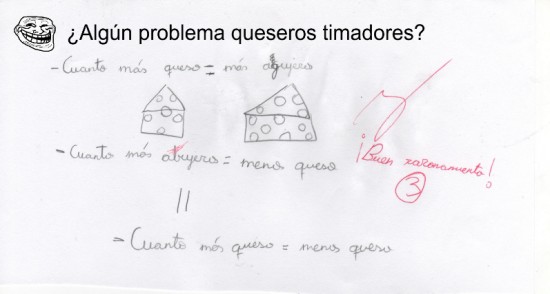 ¿Algún problema queseros timadores?
- Cuanto más queso = más agujero
- Cuanto más abujero = menos queso
¡Buen razonamiento!
3
||
- Cuanto más queso = menos queso